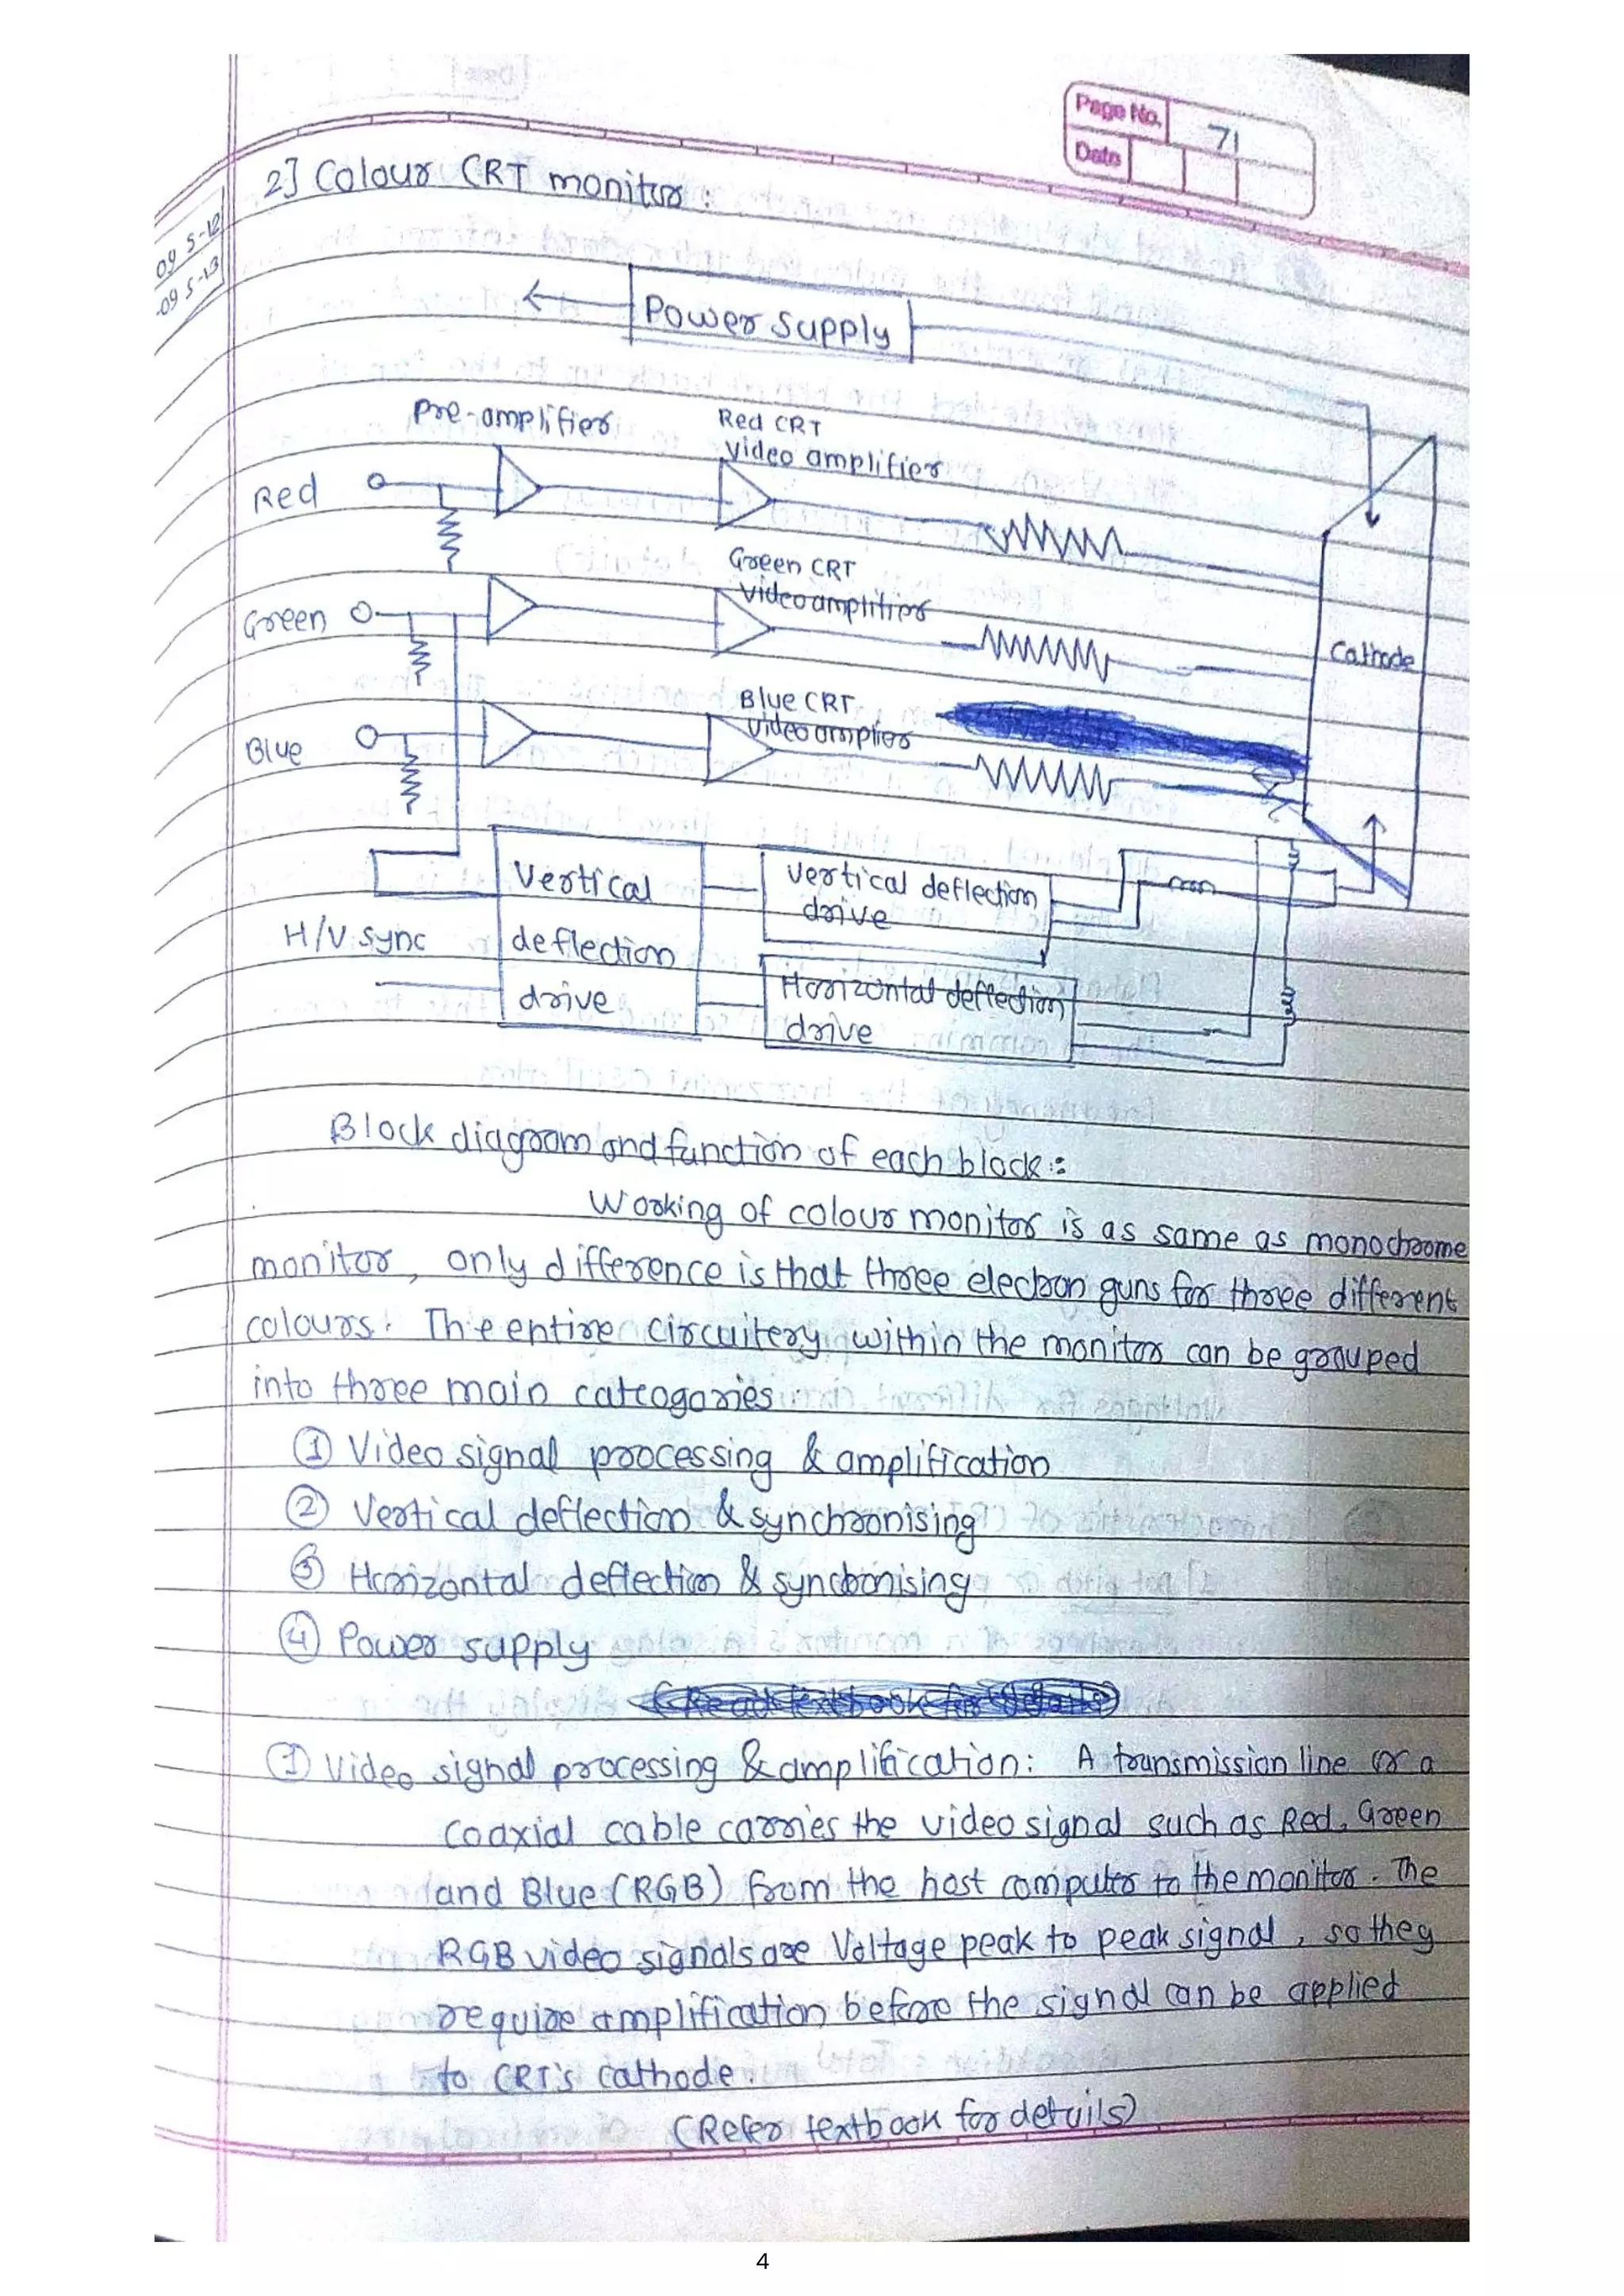 Page No. 71
Date
2] Colour CRT monitor :
09 S-12
09 S-13
Power supply
Pre-amplifier
Red CRT
Video amplifier
Red
Green CRT
Video amplifier
Green
Cathode
Blue CRT
Video amplier
Blue
Vertical
deflection
drive
Vertical deflection
drive
H/V sync
Horizontal deflection
drive
Block diagram and function of each block :
Working of colour monitor is as same as monochrome
monitor, only difference is that three electron guns for three different
colours. The entire circuitery within the monitor can be grouped
into three main catcogories
① Video signal processing & amplification
② Vertical deflection & synchronising
③ Horizontal deflection & synchronising
④ Power supply
① Video signal processing & amplification: A transmission line or a
coaxial cable carries the video signal such as Red, Green
and Blue (RGB) from the host computer to the monitor. The
RGB video signals are Voltage peak to peak signal, so they
require amplification before the signal can be applied
to CRT's cathode.
(Refer textbook for details)
4